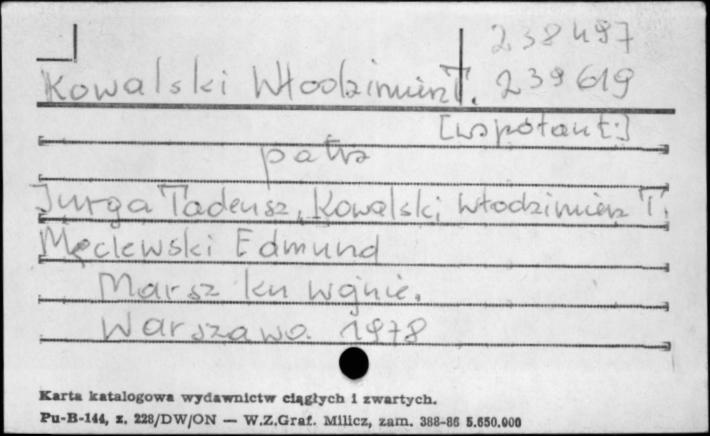 238497
Kowalski Włodzimierz T. 239619
[współaut.]
patrz
Jurga Tadeusz, Kowalski Włodzimierz T.
Męclewski Edmund
Marsz ku wojnie.
Warszawa 1978
Karta katalogowa wydawnictw ciągłych i zwartych.
Pu-B-144, z. 228/DW/ON — W.Z.Graf. Milicz, zam. 388-86 5.650.000